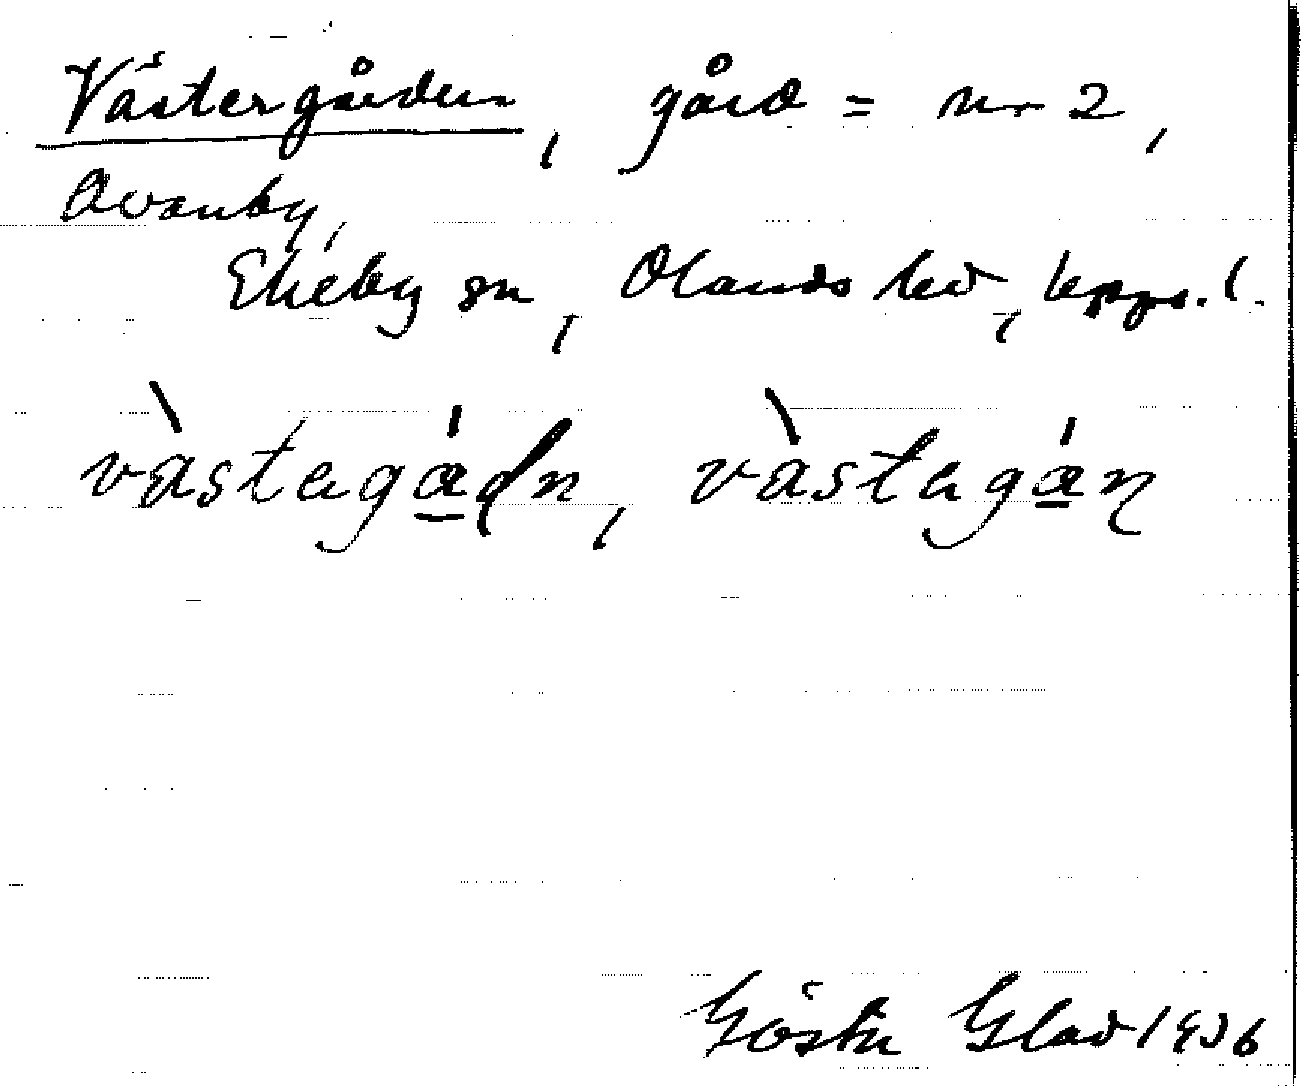 Västergården, gård = nr 2,
Ovanby,
Ekeby sn, Olands hd, Upps. l.
vàstagådn, vàstagån
Gösta Glad 1936